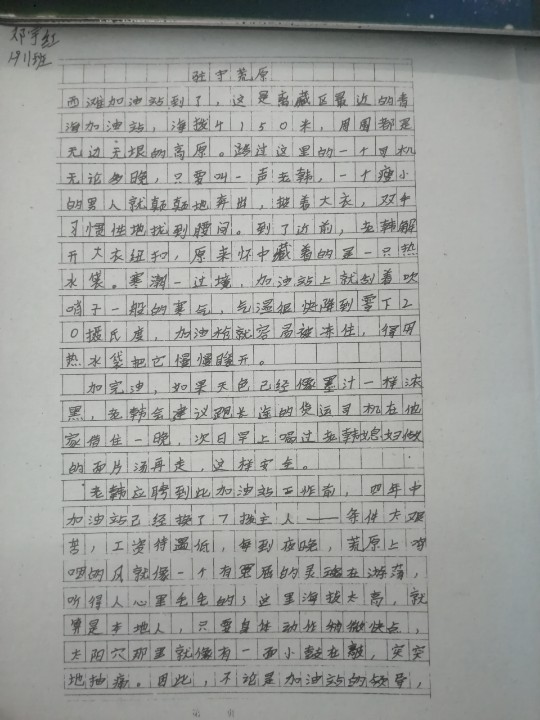 邓宇红
1911班
驻守荒原
西滩加油站到了，这是离藏区最近的青
海加油站，海拔4150米，周围都是
无边无垠的高原。路过这里的一个司机
无论多晚，只要叫一声老韩，一个瘦小
的男人就颠颠地奔出，披着大衣，双手
习惯性地找到腰间。到了近前，老韩解
开大衣纽扣，原来怀中藏着的是一只热
水袋。寒潮一过境，加油站上就刮着吹
哨子一般的寒气，气温很快降到零下2
0摄氏度，加油枪就容易被冻住，得用
热水袋把它慢慢暖开。
加完油，如果天色已经像墨汁一样浓
黑，老韩会建议跑长途的货运司机在他
家借住一晚，次日早上喝过老韩媳妇做
的面片汤再走，这样安全。
老韩应聘到此加油站工作前，四年中
加油站已经换了7拨主人——条件太艰
苦，工资待遇低，每到夜晚，荒原上呜
咽的风就像一个有委屈的灵魂在游荡，
听得人心里毛毛的；这里海拔太高，就
算是本地人，只要身体动作稍微快点，
太阳穴那里就像有一面小鼓在敲，突突
地抽痛。因此，不论是加油站的领导，
第 页